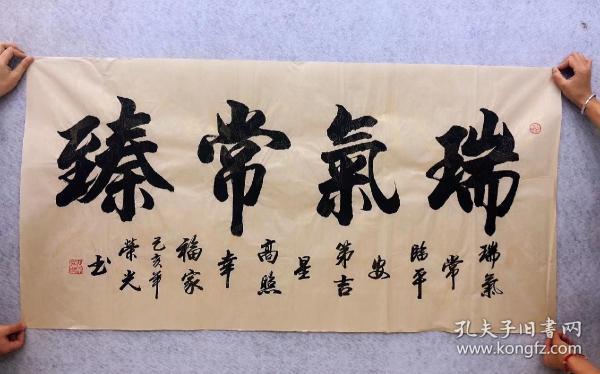 瑞氣常臻
瑞氣
常
臨平
安
第吉
星
高照
幸
福家
己亥年
榮光
书
孔夫子旧书网
www.kongfz.com